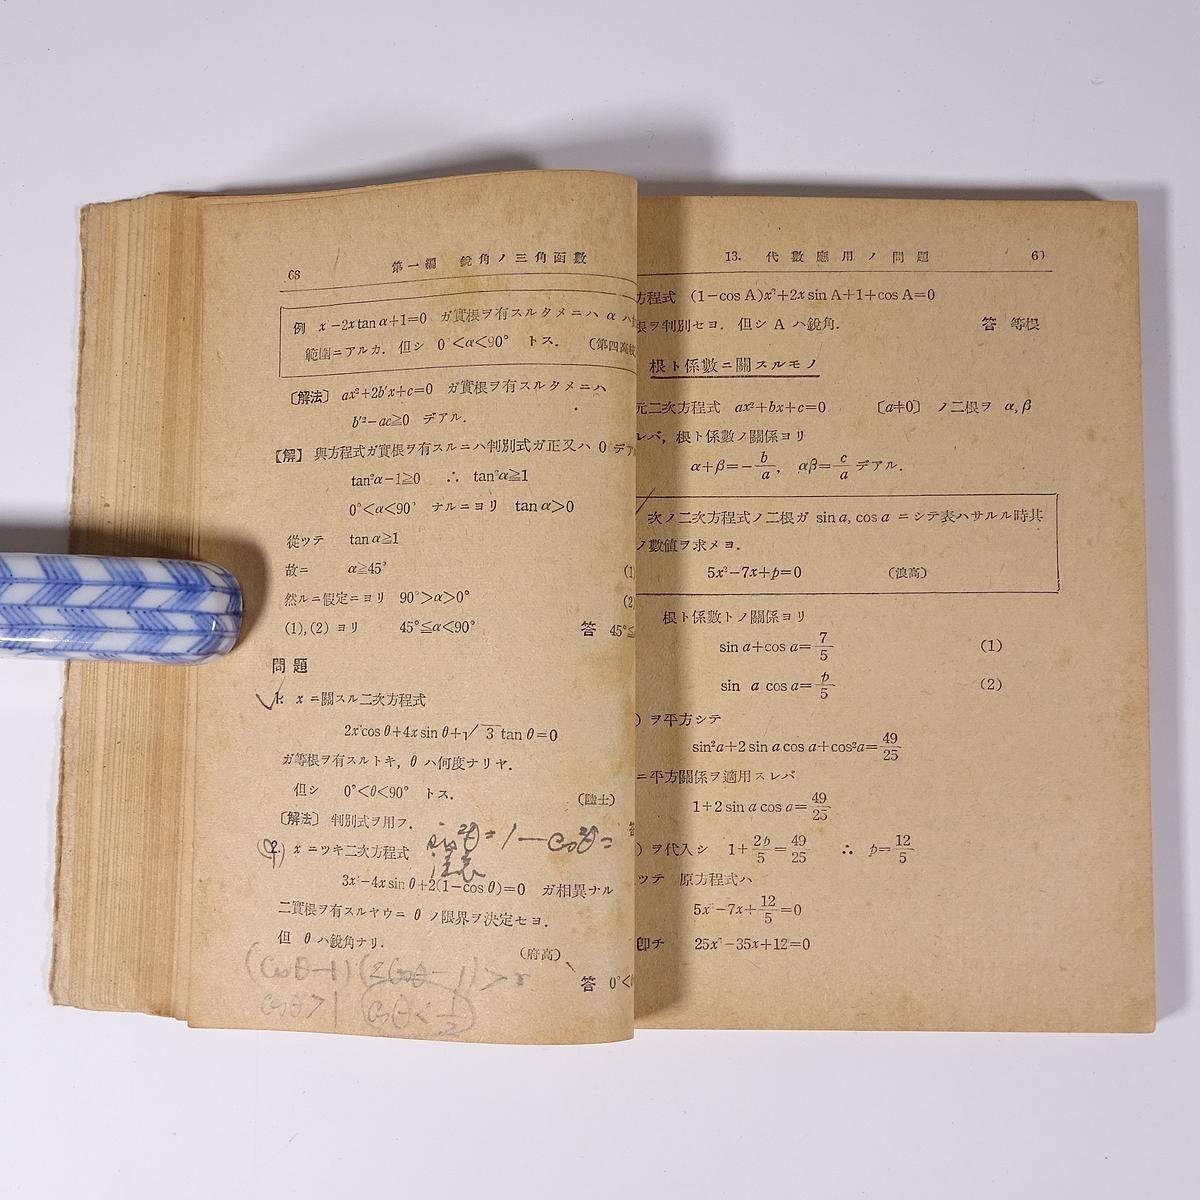 68
第一編 銳角ノ三角函數
例 x²−2x tan α+1=0 ガ實根ヲ有スルタメニハ α ハ
範圍ニアルカ. 但シ 0°<α<90° トス. (第四高
〔解法〕 ax²+2b′x+c=0 ガ實根ヲ有スルタメニハ
b′²−ac≧0 デアル.
【解】 與方程式ガ實根ヲ有スルニハ判別式ガ正又ハ 0 デア
tan²α−1≧0 ∴ tan²α≧1
0°<α<90° ナルニヨリ tan α>0
從ツテ tan α≧1
故ニ α≧45°
(1
然ルニ假定ニヨリ 90°>α>0°
(2
(1),(2) ヨリ 45°≦α<90° 答 45°≦
問題
1. x ニ關スル二次方程式
2x²cos θ+4x sin θ+√3 tan θ=0
ガ等根ヲ有スルトキ, θ ハ何度ナリヤ.
但シ 0°<θ<90° トス.
(陸士)
〔解法〕 判別式ヲ用フ.
sin²θ=1−cos²θ=
2. x ニツキ二次方程式
3x²−4x sin θ+2(1−cos θ)=0 ガ相異ナル
二實根ヲ有スルヤウニ θ ノ限界ヲ決定セヨ.
但 θ ハ銳角ナリ.
(府高)
(cosθ−1)(2cosθ−1)>
答 0°<
cosθ>1 cosθ<1/2
13. 代數應用ノ問題
69
方程式 (1−cos A)x²+2x sin A+1+cos A=0
根ヲ判別セヨ. 但シ A ハ銳角. 答 等根
根ト係數ニ關スルモノ
元二次方程式 ax²+bx+c=0 〔a≠0〕 ノ二根ヲ α,β
レバ, 根ト係數ノ關係ヨリ
α+β=−b/a, αβ=c/a デアル.
次ノ二次方程式ノ二根ガ sin a, cos a ニシテ表ハサルル時其
ノ數値ヲ求メヨ.
5x²−7x+p=0 (浪高)
根ト係數トノ關係ヨリ
sin a+cos a=7/5 (1)
sin a cos a=p/5 (2)
) ヲ平方シテ
sin²a+2 sin a cos a+cos²a=49/25
ニ平方關係ヲ適用スレバ
1+2 sin a cos a=49/25
) ヲ代入シ 1+2p/5=49/25 ∴ p=12/5
ツテ 原方程式ハ
5x²−7x+12/5=0
卽チ 25x²−35x+12=0